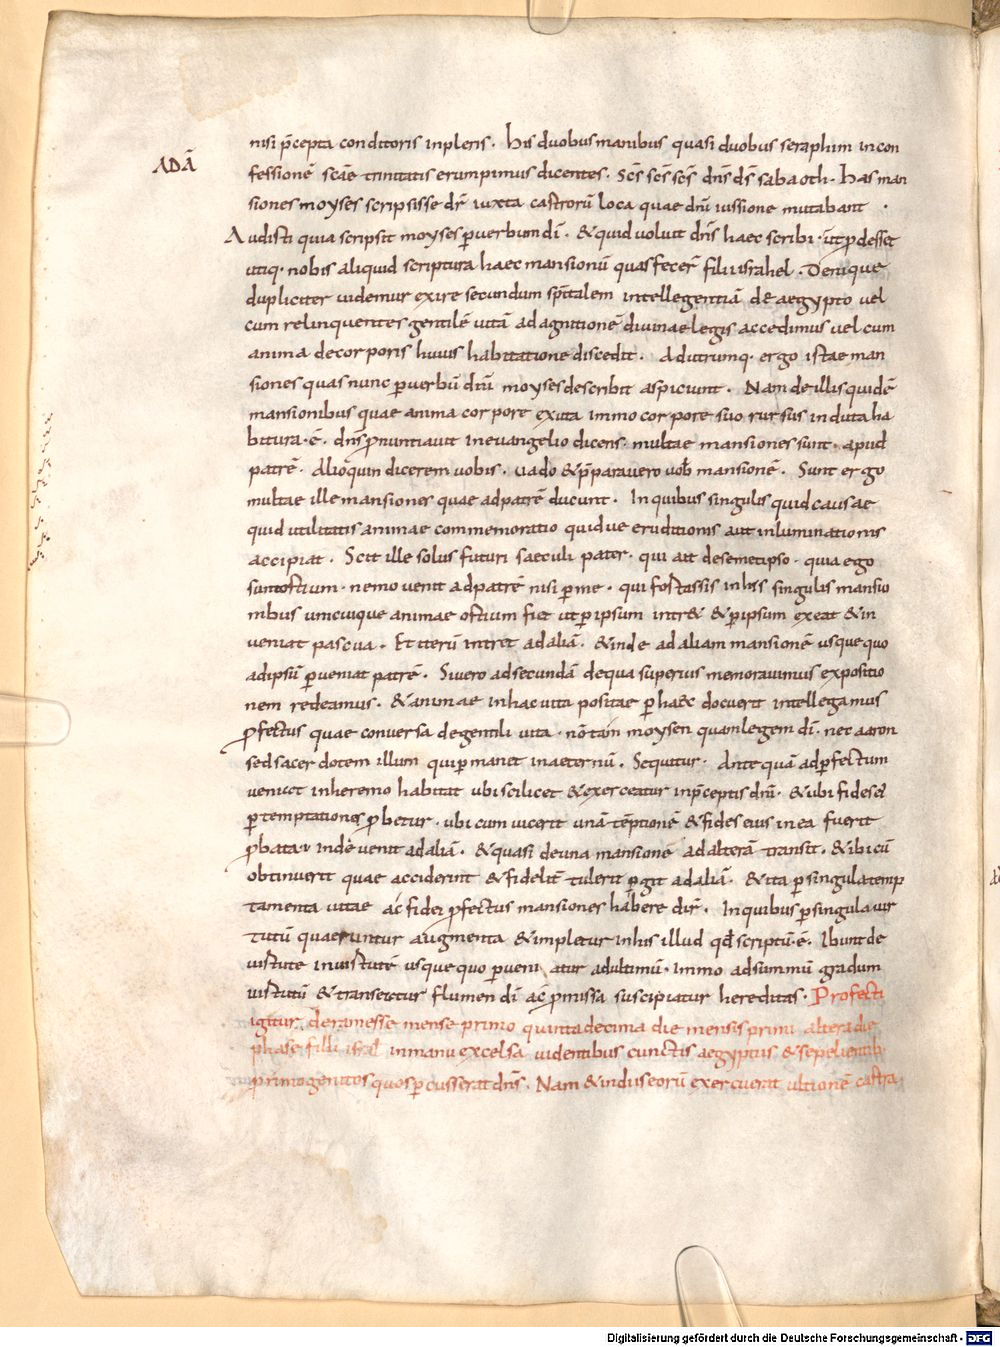 nisi p̄cepta conditoris inpleris. His duobus manibus quasi duobus seraphim incon
ADĀ
fessionē scāe trinitatis erumpimus dicentes. Scs̄ scs̄ scs̄ dn̄s ds̄ sabaoth. Has man
siones moyses scripsisse dr̄ iuxta castrorū loca quae dn̄i iussione mutabant.
Audisti quia scripsit moyses p̲ uerbum dī. & quid voluit dn̄s haec scribi. ut p̲desset
utiq· nobis aliquid scriptura haec mansionū quas fecer̄ filii israhel. Denique
dupliciter uidemur exire secundum sp̄italem intellegentiā de aegypto vel
cum relinquentes gentilē uitā ad agnitionē divinae legis accedimus vel cum
anima de corporis huius habitatione discedit. Ad utrumq· ergo istae man
siones quas nunc p̲ uerbū dn̄i moyses describit aspiciunt. Nam de illis quidē
mansionibus quae anima corpore exuta immo corpore suo rursus induta ha
bitura·ē· dn̄s p̲nuntiavit in evangelio dicens. multae mansiones sunt apud
patrē. Alioquin dicerem vobis. vado & p̄paravero vob̄ mansionē. Sunt ergo
multae ille mansiones quae ad patrē ducunt. In quibus singulis quid causae
quid utilitatis animae commemoratio quidve eruditionis aut inluminationis
accipiat. Scit ille solus futuri saeculi pater. qui ait de semetipso. quia ego
sum ostium. nemo venit ad patrē nisi p̲ me. qui fostassis in hiis singulis mansio
nibus unicuique animae ostium fiet ut p̲ ipsum intr& & p̲ ipsum exeat & in
veniat pascua. Et iterū intret ad aliā. & inde ad aliam mansionē usque quo
ad ipsū p̲veniat patrē. Si vero ad secundā de qua superius memoravimus expositio
nem redeamus. & animae in hac vita positae p̲ haec docverit intellegamus
p̲fectus quae conversa de gentili vita. nō tam moysen quam legem dī. nec aaron
sed sacerdotem illum qui p̲manet in aeternū. Sequitur. Ante quā ad p̲fectum
veniat in heremo habitat ubi scilicet & exerceatur in p̄ceptis dn̄i. & ubi fides ei
p̲ temptationes p̲betur. ubi cum vicerit unā tēptionē & fides eius in ea fuerit
p̲bata inde venit ad aliā. & quasi de una mansione ad alterā transit. & ibi cū
obtinverit quae acciderint & fidelit̄ tulerit p̲git ad aliā. & ita p̲ singula temp
tamenta vitae ac fidei p̲fectus mansiones habere dir̄. In quibus p̲ singula uir
tutū quaeruntur augmenta & impletur in his illud qđ scriptū·ē· Ibunt de
uistute in uistutē usque quo p̲veniatur ad ultimū. immo ad summū gradum
uistutū & transeatur flumen dī ac p̲missa suscipiatur hereditas. Profecti
igitur de ramesse mense primo quinta decima die mensis primi altera die
phase filii isrl̄ in manu excelsa videntibus cunctis aegyptiis & sepelientib
primogenitos quos p̲cusserat dn̄s. Nam & in diis eorū exercuerat ultionē castra
Digitalisierung gefördert durch die Deutsche Forschungsgemeinschaft - DFG